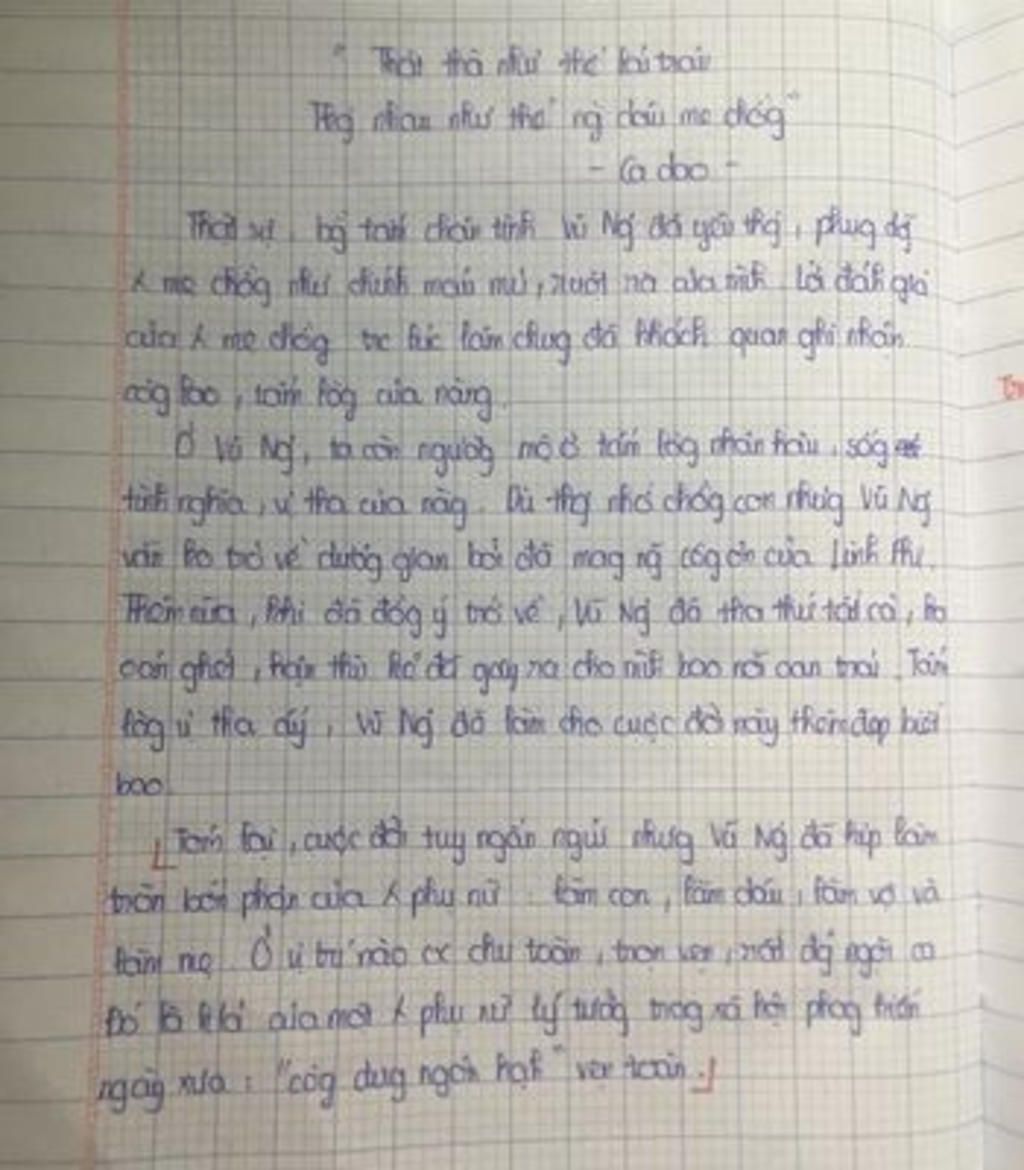 " Thật thà như thể lái trâu
Thg nhau như thể ng dâu mẹ chồg"
- Ca dao -
Thật sự, bg tấm chân tình Vũ Ng đã yêu thg, phụng dg
mẹ chồg như chính máu mủ, ruột rà của mình. Lời đánh giá
của mẹ chồg trc lúc lâm chung đã khách quan ghi nhận
côg lao, tấm lòg của nàng.
Ở Vũ Ng, ta còn ngưỡng mộ ở tấm lòg nhân hậu, sốg
tình nghĩa, vị tha của nàg. Dù thg nhớ chồg con nhưg Vũ Ng
vẫn ko trở về dươg gian bởi đã mag ng côg ơn của Linh Phi.
Thêm nữa, khi đã đồg ý trở về, Vũ Ng đã tha thứ tất cả, ko
oán ghét, hận thù kẻ đã gây ra cho mình bao nỗi oan trái. Tấm
lòg vị tha ấy, Vũ Ng đã làm cho cuộc đời này thêm đẹp biết
bao.
Tóm lại, cuộc đời tuy ngắn ngủi nhưg Vũ Ng đã kịp làm
tròn bổn phận của phụ nữ : làm con, làm dâu, làm vợ và
làm mẹ. Ở vị trí nào cx chu toàn, trọn vẹn, rất đág ngợi ca
Đó là của một phụ nữ lý tưởg trog xã hội phog kiến
ngày xưa : "côg dug ngôn hạh" vẹn toàn.